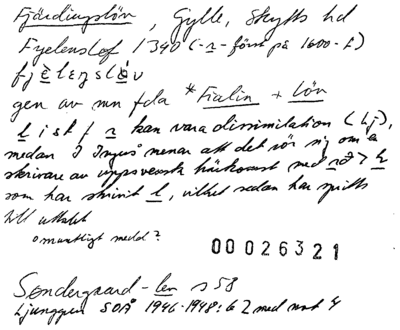 Fjärdingslöv, Gylle, Skytts hd
Fyelenslef 1390 (-r- först på 1600-t)
fjèlɛŋslǻv
gen av mn fda *Fialin + löv
l i st f r kan vara dissimilation (Lj),
medan J Ingus menar att det rör sig om en
skrivare av uppsvensk härkomst med rð > l
som har skrivit l, vilket sedan har spritts
till uttalet
omuntligt medd?
00026321
Søndergaard -lev s 58
Ljunggren SOÅ 1946-1948: 62 med not 4